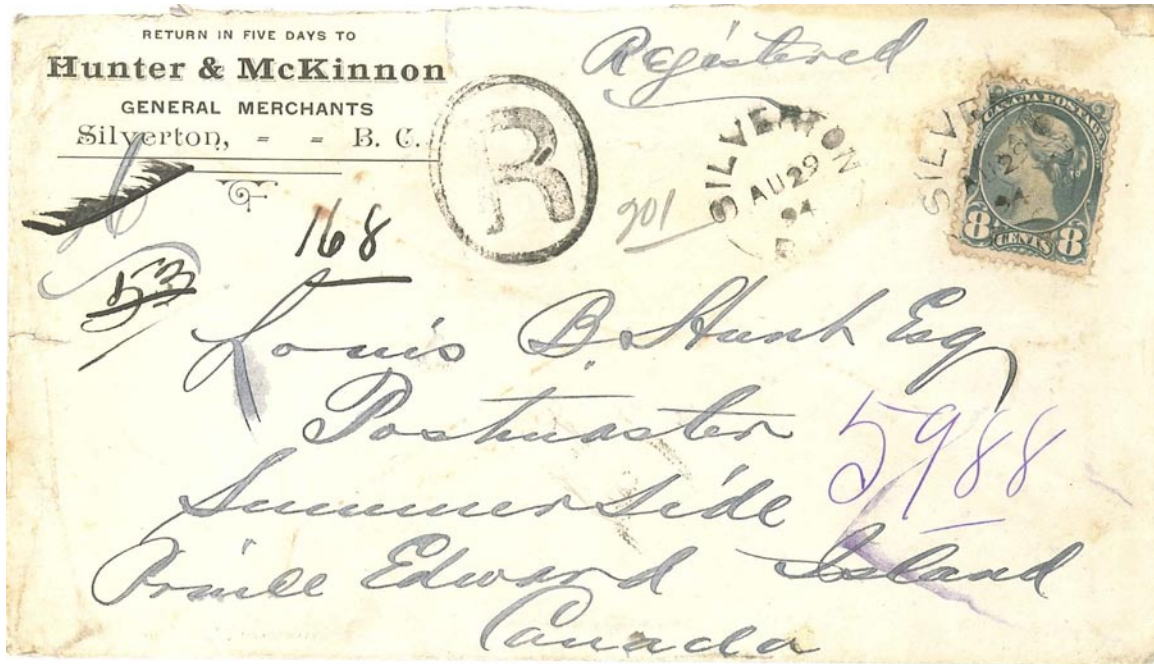 RETURN IN FIVE DAYS TO
Hunter & McKinnon
GENERAL MERCHANTS
Silverton, - - B. C.
Registered
R
SILVERTON
AU 29
94
CANADA POSTAGE
8 CENTS 8
SILVE
AU 29
94
201
168
53
Louis B. Hunt Esq
Postmaster
Summerside
Prince Edward Island
Canada
5988